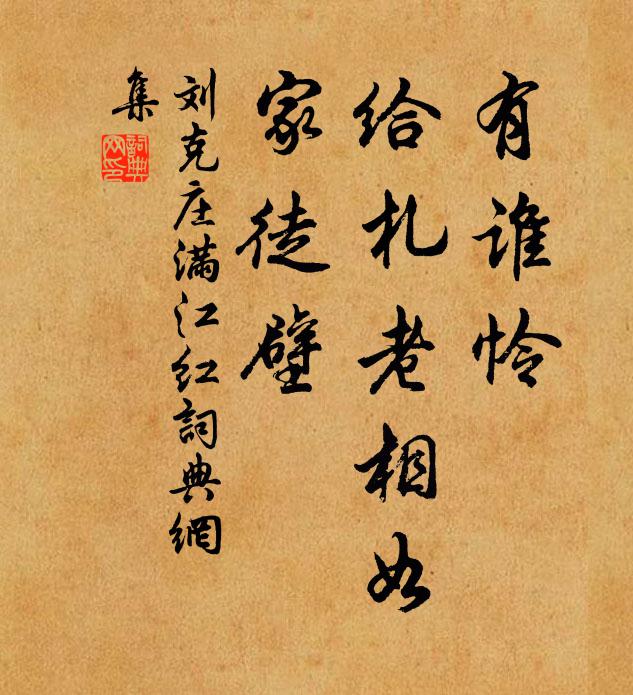 有谁怜
给札老相如
家徒壁
刘克庄满江红詞典網
集
詞典网印